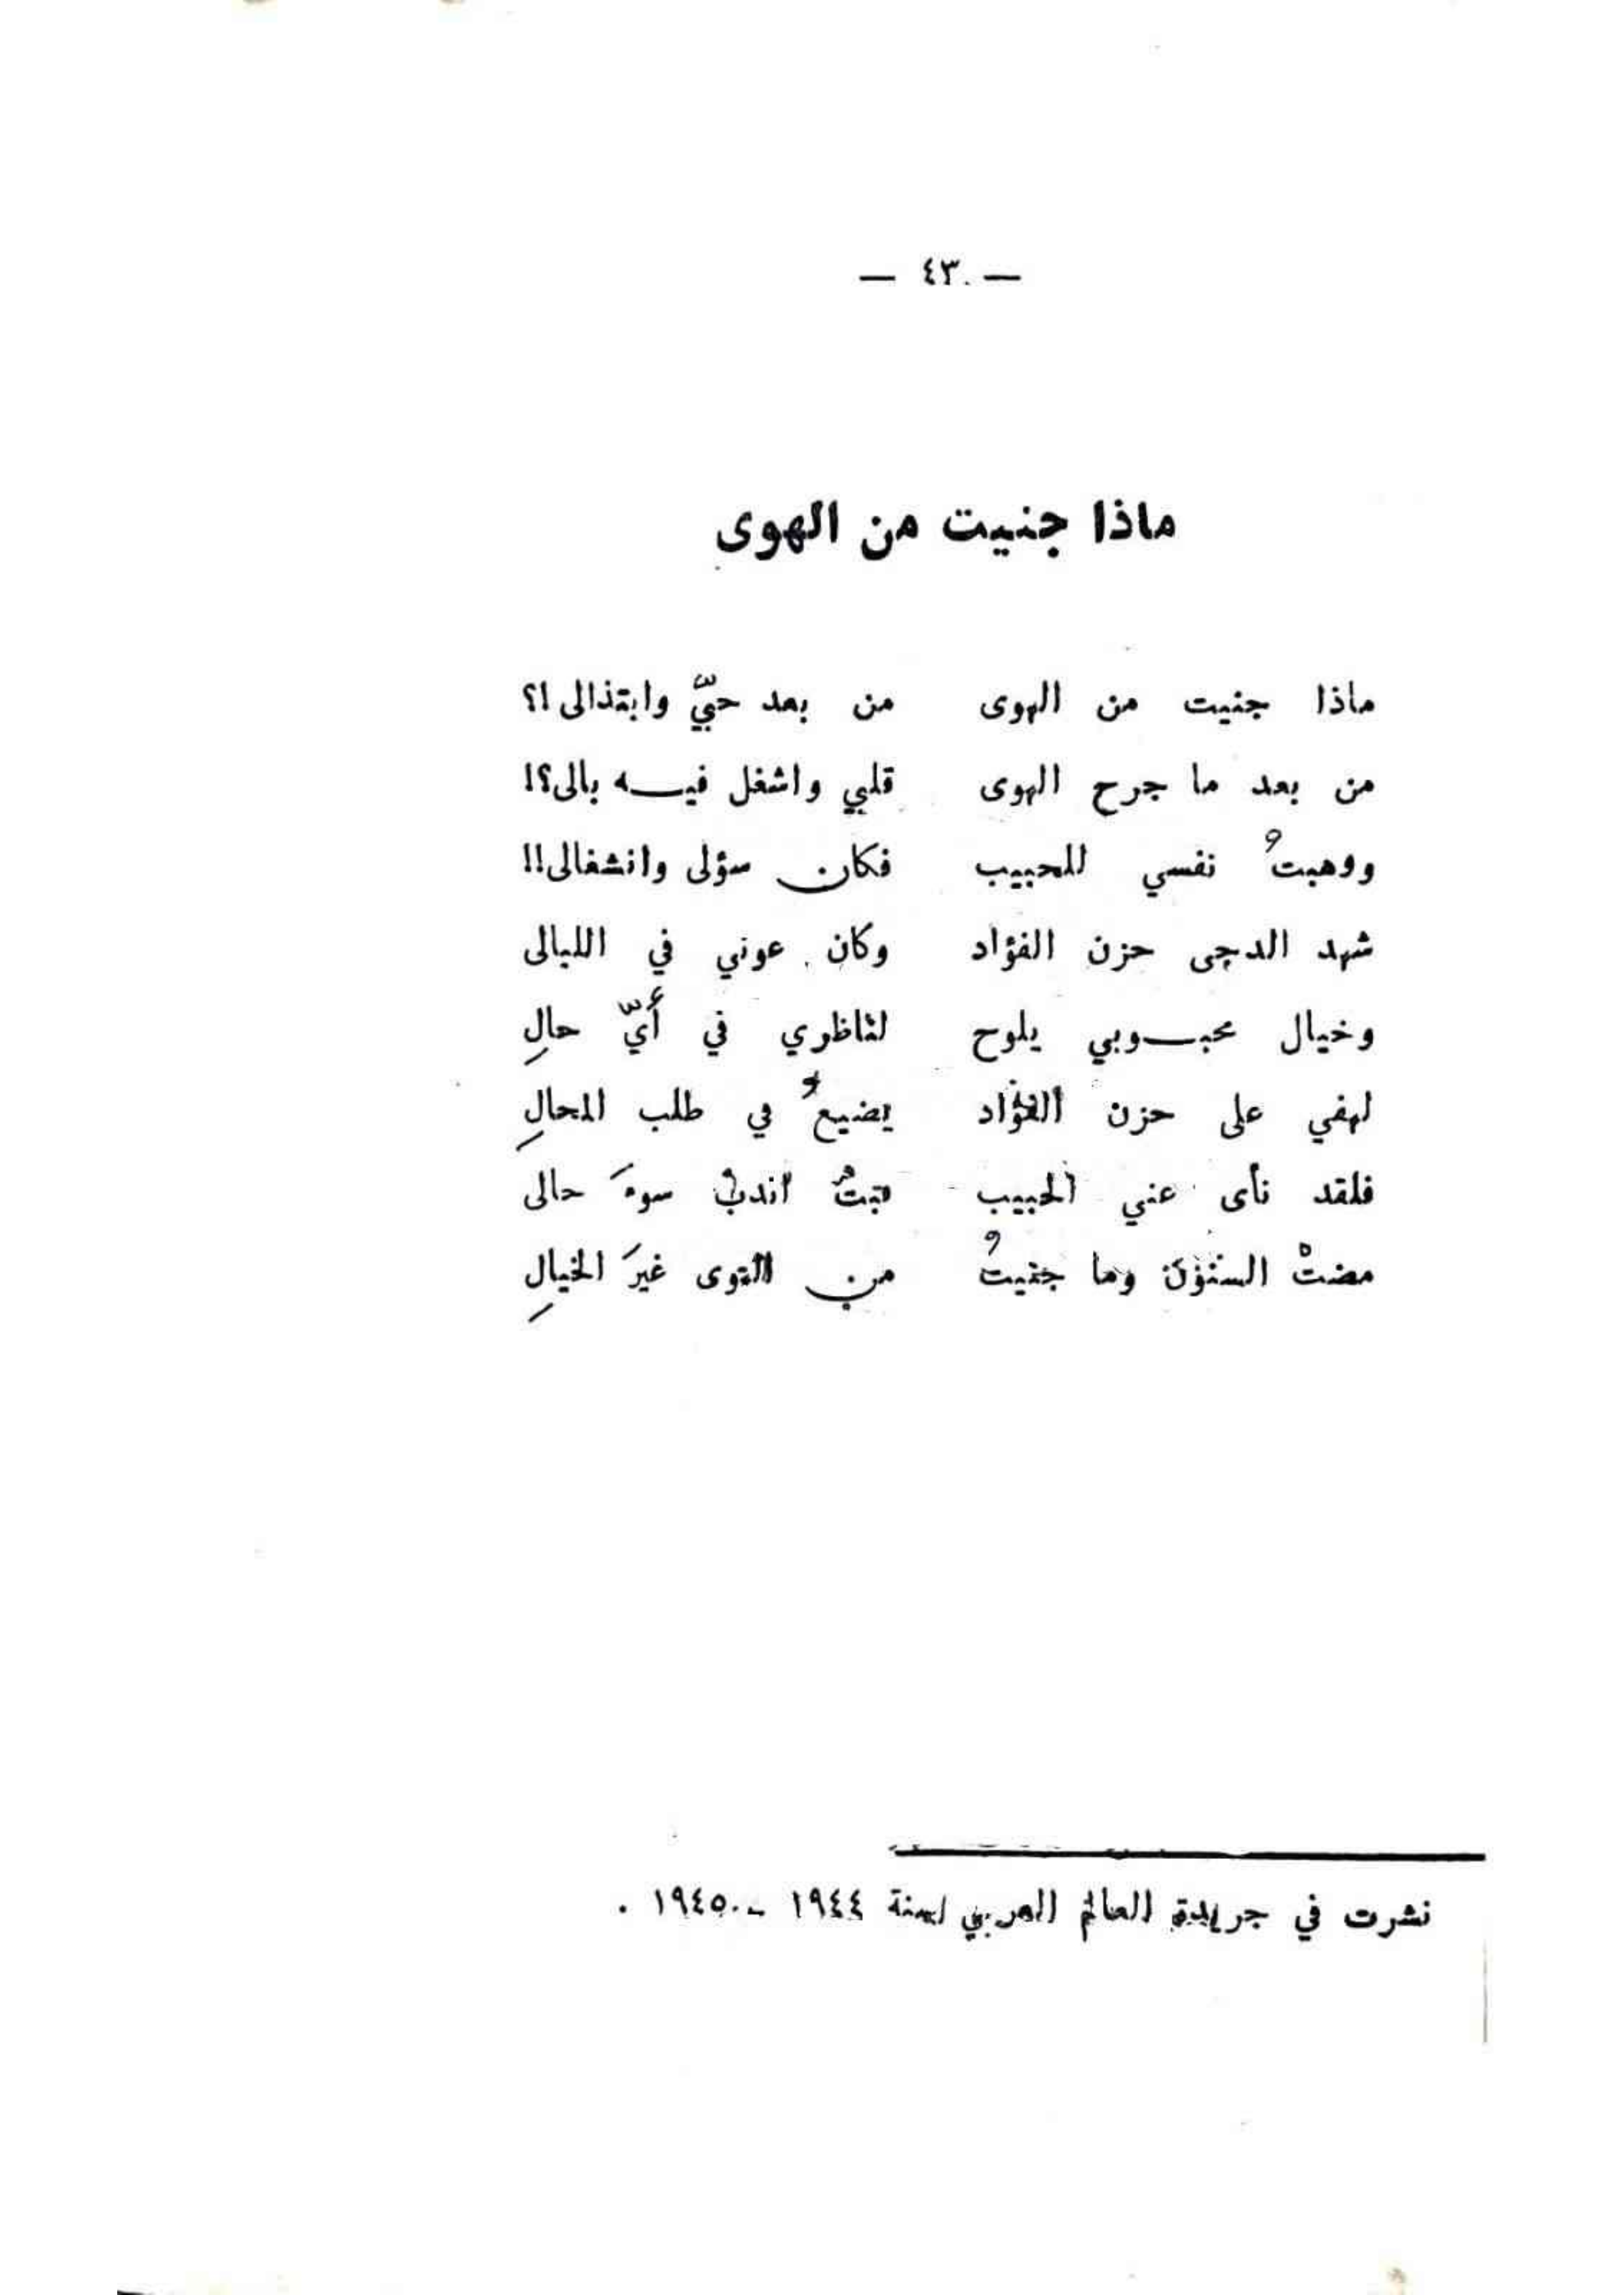 — ٤٣ —
ماذا جنيت من الهوى
ماذا جنيت من الهوى من بعد حبيّ وابتذالى !؟
من بعد ما جرح الهوى قلبي واشغل فيـــه بالى؟!
ووهبتُ نفسي للحبيب فكان سؤلى وانشغالى!!
شهد الدجى حزن الفؤاد وكان عوني في الليالى
وخيال محبـــوبي يلوح لناظري في أيّ حالِ
لهفي على حزن الفؤاد يضيعُ في طلب المحالِ
فلقد نأى عني الحبيب فبتُ أندبُ سوءَ حالى
مضتْ السنونَ وما جنيتُ من الهوى غيرَ الخيالِ
نشرت في جريدة العالم العربي لسنة ١٩٤٤ - ١٩٤٥ .